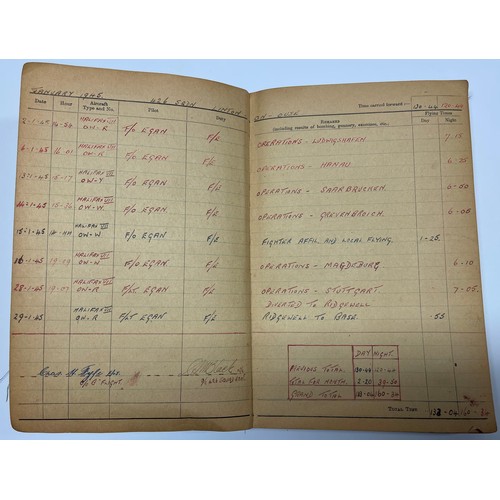 JANUARY 1945. 426 SQDN LINTON - ON - OUSE
Time carried forward:— 130-44 130-40
Date Hour Aircraft Type and No. Pilot Duty Remarks (including results of bombing, gunnery, exercises, etc.) Flying Times Day Night
2-1-45 HALIFAX VII OW-R F/O EGAN F/E OPERATIONS - LUDWIGSHAFEN 7.15
6-1-45 HALIFAX VII OW-R F/O EGAN F/E OPERATIONS - HANAU 6-25
HALIFAX VII OW-Y F/O EGAN F/E OPERATIONS - SAARBRUCKEN 6-50
14-1-45 HALIFAX VII OW-W. F/O EGAN F/E OPERATIONS - GREVENBROICH 6-05
15-1-45 HALIFAX VII OW-W F/O EGAN F/E FIGHTER AFFIL AND LOCAL FLYING. 1-25.
16-1-45 19-09 HALIFAX VII OW-W F/O EGAN F/E OPERATIONS - MAGDEBURG 6-10
28-1-45 19-07 HALIFAX VII OW-R F/LT EGAN F/E OPERATIONS - STUTTGART. 7-05
DIVERTED TO RIDGEWELL
29-1-45 HALIFAX VII OW-R F/LT EGAN F/E RIDGEWELL TO BASE. .55
DAY NIGHT
PREVIOUS TOTAL 130-44 120-40
TOTAL FOR MONTH. 2-20 39-50
GRAND TOTAL 133-04 160-30
"B" FLIGHT
TOTAL TIME 133-04 160-30